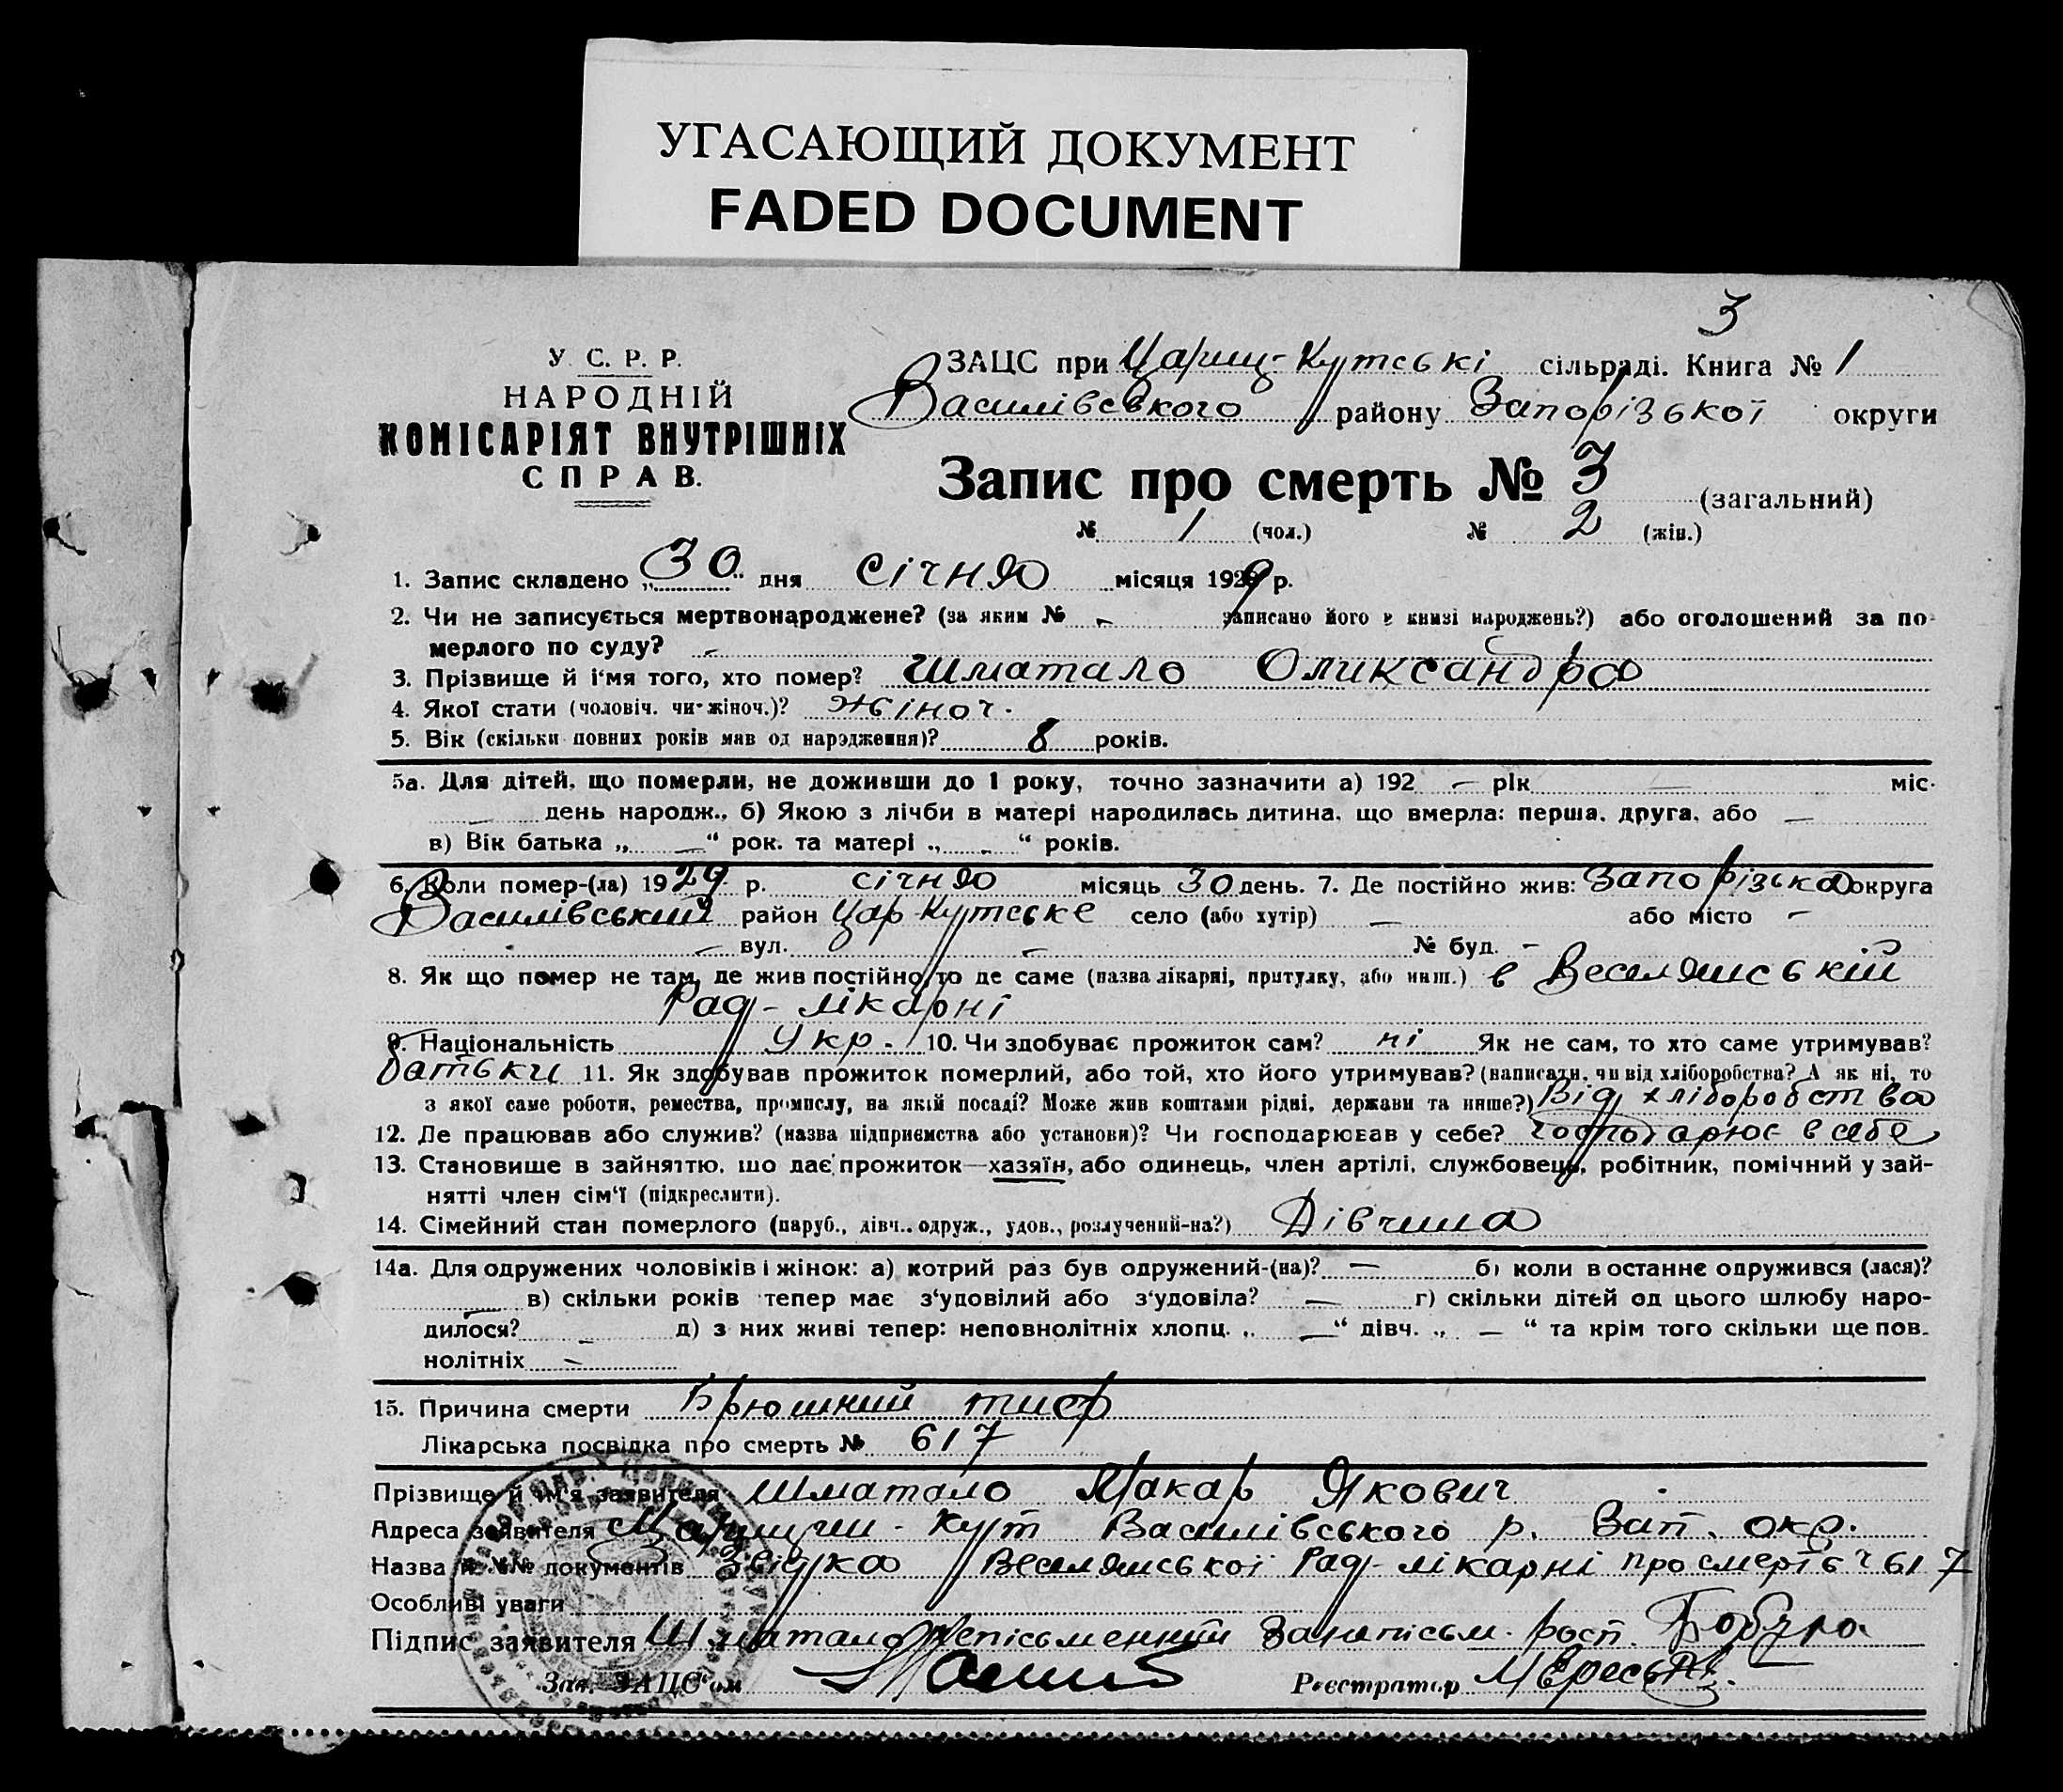 УГАСАЮЩИЙ ДОКУМЕНТ
FADED DOCUMENT
3
У С. Р. Р.
НАРОДНІЙ
КОМІСАРІЯТ ВНУТРІШНІХ
СПРАВ.
ЗАЦС при Цариц-Кутські сільраді. Книга № 1
Василівського району Запорізької округи
Запис про смерть № 3 (загальний)
№ 1 (чол.) № 2 (жін.)
1. Запис складено „30" дня січня місяця 1929 р.
2. Чи не записується мертвонароджене? (за яким № - записано його в книзі народжень?) або оголошений за по-
мерлого по суду? -
3. Прізвище й і'мя того, хто помер? Шматало Оликсандра
4. Якої стати (чоловіч. чи жіноч.)? жіноч.
5. Вік (скільки повних років мав од народження)? 8 років.
5а. Для дітей, що померли, не доживши до 1 року, точно зазначити а) 192 — рік — міс.
— день народж., б) Якою з лічби в матері народилась дитина, що вмерла: перша, друга, або —
в) Вік батька „ — “ рок. та матері „ - “ років.
6. Коли помер-(ла) 1929 р. січня місяць 30 день. 7. Де постійно жив: Запорізька округа
Василівський район Цар Кутське село (або хутір) — або місто —
— вул. — № буд. -
8. Як що помер не там, де жив постійно, то де саме (назва лікарні, притулку, або инш.) в Веселянській
Рад-лікарні
9. Національність Укр. 10. Чи здобуває прожиток сам? ні Як не сам, то хто саме утримував?
батьки 11. Як здобував прожиток померлий, або той, хто його утримував? (написати, чи від хліборобства? А як ні, то
з якої саме роботи, ремества, промислу, на якій посаді? Може жив коштами рідні, держави та инше?) Від хліборобства
12. Де працював або служив? (назва підприємства або установи)? Чи господарював у себе? господарює в себе
13. Становище в зайняттю, що дає прожиток—хазяїн, або одинець, член артілі, службовець, робітник, помічний у зай-
нятті член сім'ї (підкреслити).
14. Сімейний стан померлого (паруб., дівч., одруж., удов., розлучений-на?) Дівчина
14а. Для одружених чоловіків і жінок: а) котрий раз був одружений-(на)? — б) коли в останнє одружився (лася)?
— в) скільки років тепер має з'удовілий або з'удовіла? — г) скільки дітей од цього шлюбу наро-
дилося? - д) з них живі тепер: неповнолітніх хлопц. „ — “ дівч. „ — “ та крім того скільки ще пов-
нолітніх -
15. Причина смерти Брюшний тиф
Лікарська посвідка про смерть № 617
Прізвище й им'я заявителя Шматало Макар Якович
Адреса заявителя Царицин-Кут Василівського р. Зап. окр.
Назва й №№ документів Звідка Веселянської Рад-лікарні про смерть ч 617
Особливі уваги
Підпис заявителя Шматало Непісьменний За неписьм. росп.
Зав. ЗАЦС'ом Реєстратор